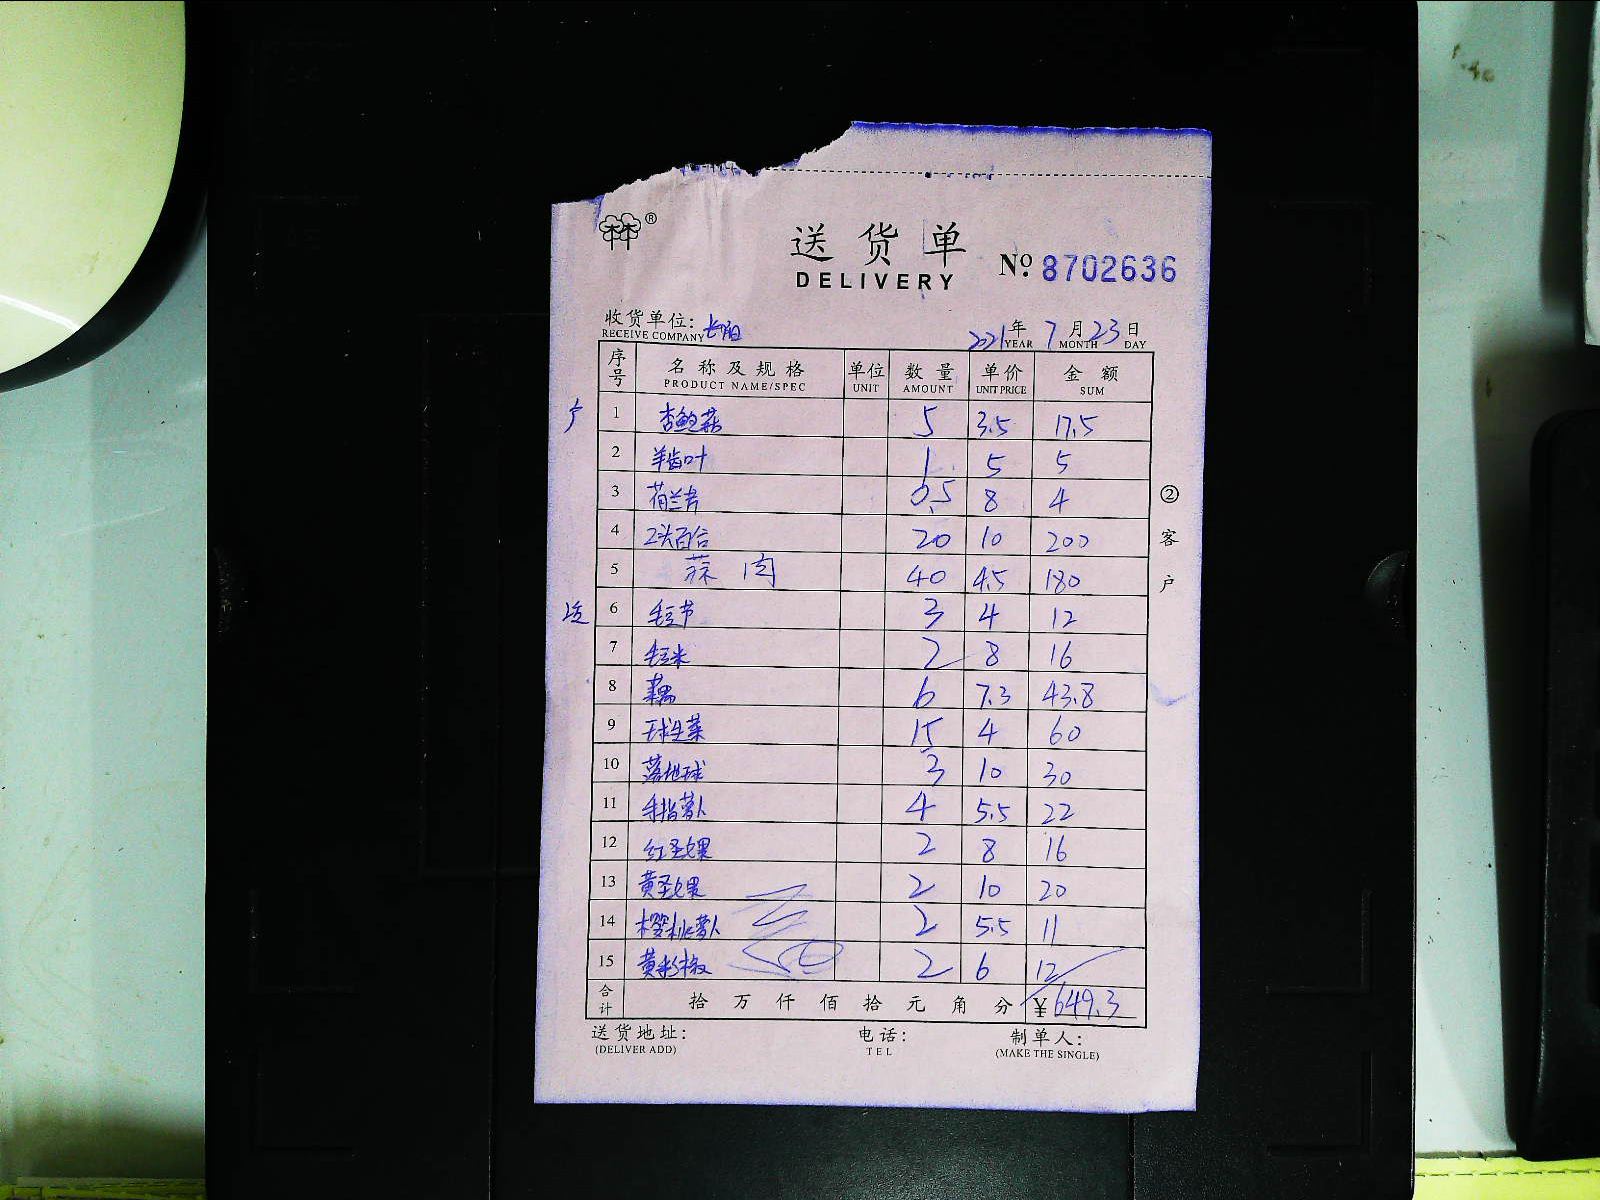 林®
送货单
DELIVERY
No. 8702636
收货单位: 长阳
RECEIVE COMPANY
2021年7月23日
YEAR MONTH DAY
序号 名称及规格 单位 数量 单价 金额
PRODUCT NAME/SPEC UNIT AMOUNT UNIT PRICE SUM
1 杏鲍菇 5 3.5 17.5
2 羊齿叶 1 5 5
3 荷兰芹 0.5 8 4
4 2头百合 20 10 200
5 蒜肉 40 4.5 180
6 毛豆节 3 4 12
7 毛豆米 2 8 16
8 藕 6 7.3 43.8
9 球生菜 15 4 60
10 落地球 3 10 30
11 手指萝卜 4 5.5 22
12 红圣女果 2 8 16
13 黄圣女果 2 10 20
14 樱桃萝卜 2 5.5 11
15 黄彩椒 2 6 12
合计 拾万仟佰拾元角分 ¥649.3
②客户
送货地址: 电话: 制单人:
(DELIVER ADD) TEL (MAKE THE SINGLE)